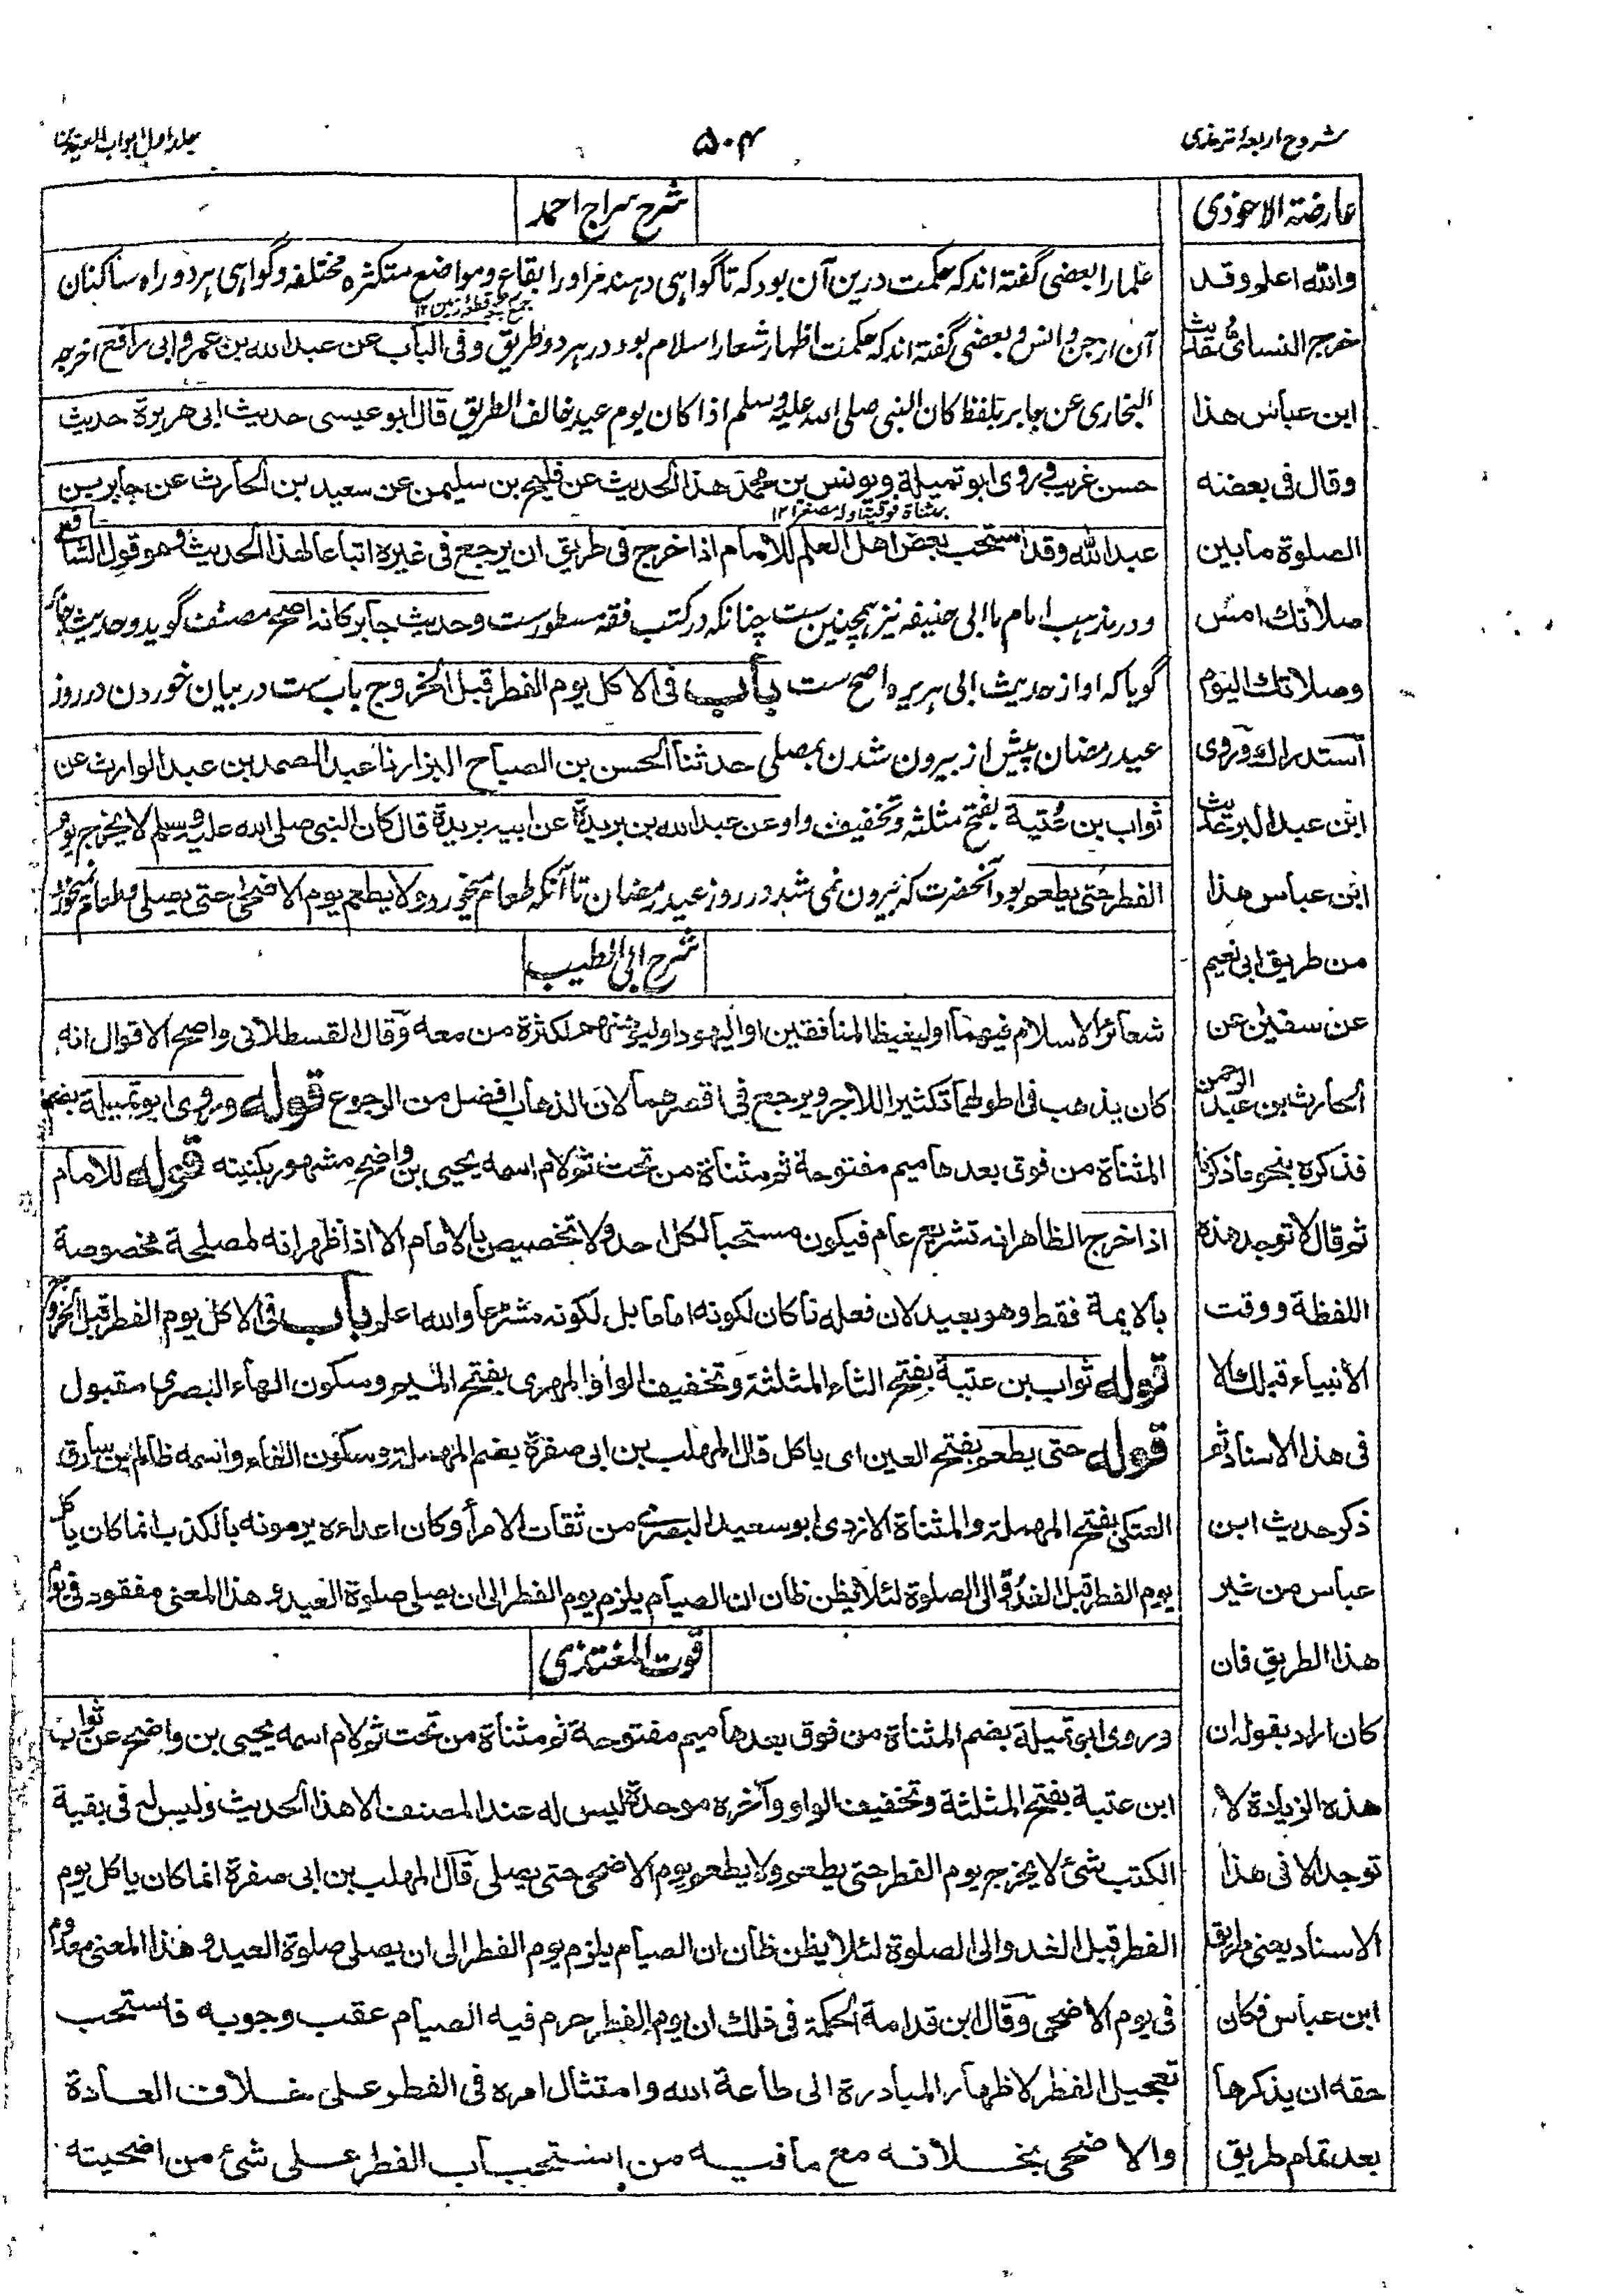 شروح اربعۂ ترمذی
۵۰۴
جلد اول ابواب العیدین
عارضة الاحوذی
والله اعلم وقد
خرج النسائی حدیث
ابن عباس هذا
وقال فی بعضه
الصلوة ما بین
صلاتك امس
وصلاتك الیوم
استدراك وروی
ابن عبد البر حدیث
ابن عباس هذا
من طریق ابی نعیم
عن سفین عن
الحارث بن عبد الرحمن
فذکره بنحو ما ذکرنا
ثم قال لا توجد هذه
اللفظة ووقت
الانبیاء قبلك الا
فی هذا الاسناد ثم
ذکر حدیث ابن
عباس من غیر
هذا الطریق فان
کان اراد بقوله ان
هذه الزیادة لا
توجد الا فی هذا
الاسناد یعنی طریقه
ابن عباس فکان
حقه ان یذکرها
بعد تمام طریق
شرح سراج احمد
علما را بعضی گفته اند که حکمت درین آن بود که تا گواهی دهند مر او را بقاع ومواضع متکثره مختلفه وگواهی هر دو راه ساکنان
آن از جن وانس وبعضی گفته اند که حکمت اظهار شعار اسلام بود در هر دو طریق وفی الباب عن عبد الله بن عمر وابی رافع اخرجه
البخاری عن جابر بلفظ کان النبی صلی الله علیه وسلم اذا کان یوم عید خالف الطریق قال ابو عیسی حدیث ابی هریرة حدیث
حسن غریب وروی ابو تمیلة ویونس بن محمد هذا الحدیث عن فلیح بن سلیمن عن سعید بن الحارث عن جابر بن
بمثناة فوقیة اوله مصغرا ۱۲
عبد الله وقد استحب بعض اهل العلم للامام اذا خرج فی طریق ان یرجع فی غیره اتباعا لهذا الحدیث وهو قول الشافعی
ودر مذهب امام ما ابی حنیفه نیز همچنین ست چنانکه در کتب فقه مسطور ست وحدیث جابر کانه اصح مصنف گوید وحدیث جابر
گویا که او از حدیث ابی هریره اصح ست باب فی الاکل یوم الفطر قبل الخروج باب ست در بیان خوردن در روز
عید رمضان پیش از بیرون شدن بمصلی حدثنا الحسن بن الصباح البزار نا عبد الصمد بن عبد الوارث عن
ثواب بن عُتبة بفتح مثلثه وتخفیف واو عن عبد الله بن بریدة عن ابیه بریدة قال کان النبی صلی الله علیه وسلم لا یخرج یوم
الفطر حتی یطعم بود آنحضرت که بیرون نمی شد در روز عید رمضان تا آنکه طعام میخورد ولا یطعم یوم الاضحی حتی یصلی وطعام نمیخورد
شرح ابی الطیب
شعائر الاسلام فیهما او لیغیظ المنافقین او الیهود او لیرهبهم لکثرة من معه وقال القسطلانی واصح الاقوال انه
کان یذهب فی اطولهما تکثیرا للاجر ویرجع فی اقصرهما لان الذهاب افضل من الرجوع قوله وروی ابو تمیلة بضم
المثناة من فوق بعدها میم مفتوحة ثم مثناة من تحت ثم لام اسمه یحیی بن واضح مشهور بکنیته قوله للامام
اذا خرج الظاهر انه تشریع عام فیکون مستحبا لکل احد ولا تخصیص بالامام الا اذا ظهر انه لمصلحة مخصوصة
بالایمة فقط وهو بعید لان فعله ما کان لکونه اماما بل لکونه مشرعا والله اعلم باب فی الاکل یوم الفطر قبل الخروج
قوله ثواب بن عتبة بفتح الثاء المثلثة وتخفیف الواو المهری بفتح المیم وسکون الهاء البصری مقبول
قوله حتی یطعم بفتح العین ای یاکل قال المهلب بن ابی صفرة بضم المهملة وسکون الفاء واسمه ظالم بن سارق
العتکی بفتح المهملة والمثناة الازدی ابو سعید البصری من ثقات الامرأ وکان اعداءه یرمونه بالکذب انما کان یاکل
یوم الفطر قبل الغدو الی الصلوة لئلا یظن ظان ان الصیام یلزم یوم الفطر الی ان یصلی صلوة العید وهذا المعنی مفقود فی یوم
قوت المغتذی
وروی ابو تمیلة بضم المثناة من فوق بعدها میم مفتوحة ثم مثناة من تحت ثم لام اسمه یحیی بن واضح عن ثواب
ابن عتبة بفتح المثلثة وتخفیف الواو وآخره موحدة لیس له عند المصنف الا هذا الحدیث ولیس له فی بقیة
الکتب شئ لا یخرج یوم الفطر حتی یطعم ولا یطعم یوم الاضحی حتی یصلی قال المهلب بن ابی صفرة انما کان یاکل یوم
الفطر قبل الغدو الی الصلوة لئلا یظن ظان ان الصیام یلزم یوم الفطر الی ان یصلی صلوة العید وهذا المعنی معدوم
فی یوم الاضحی وقال ابن قدامة الحکمة فی ذلك ان یوم الفطر حرم فیه الصیام عقب وجوبه فاستحب
تعجیل الفطر لاظهار المبادرة الی طاعة الله وامتثال امره فی الفطر علی خلاف العادة
والاضحی بخلافه مع ما فیه من استحباب الفطر علی شئ من اضحیته